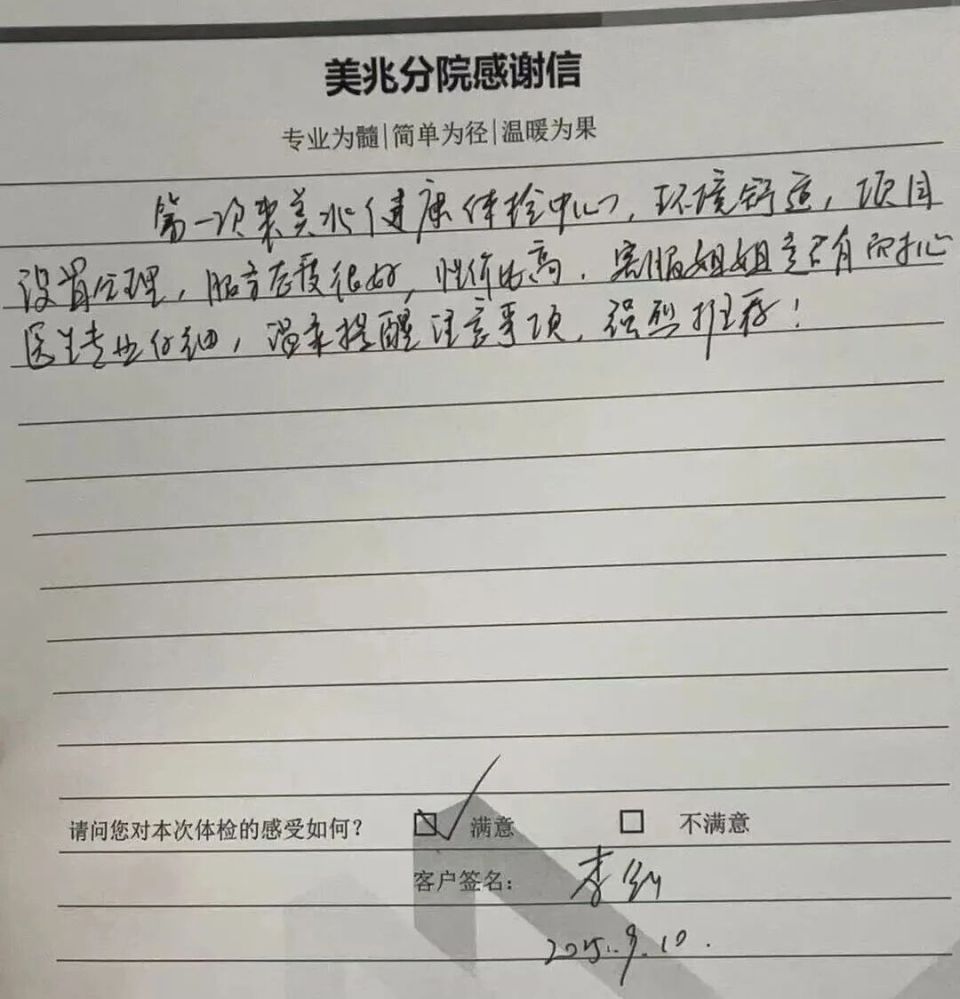 美兆分院感谢信
专业为髓|简单为径|温暖为果
第一次来美兆健康体检中心，环境舒适，项目
设置合理，服务态度很好，性价比高，客服姐姐亲切有耐心
医生专业仔细，温柔提醒注意事项，强烈推荐！
请问您对本次体检的感受如何？ 满意 不满意
客户签名： 李
2025.9.10.